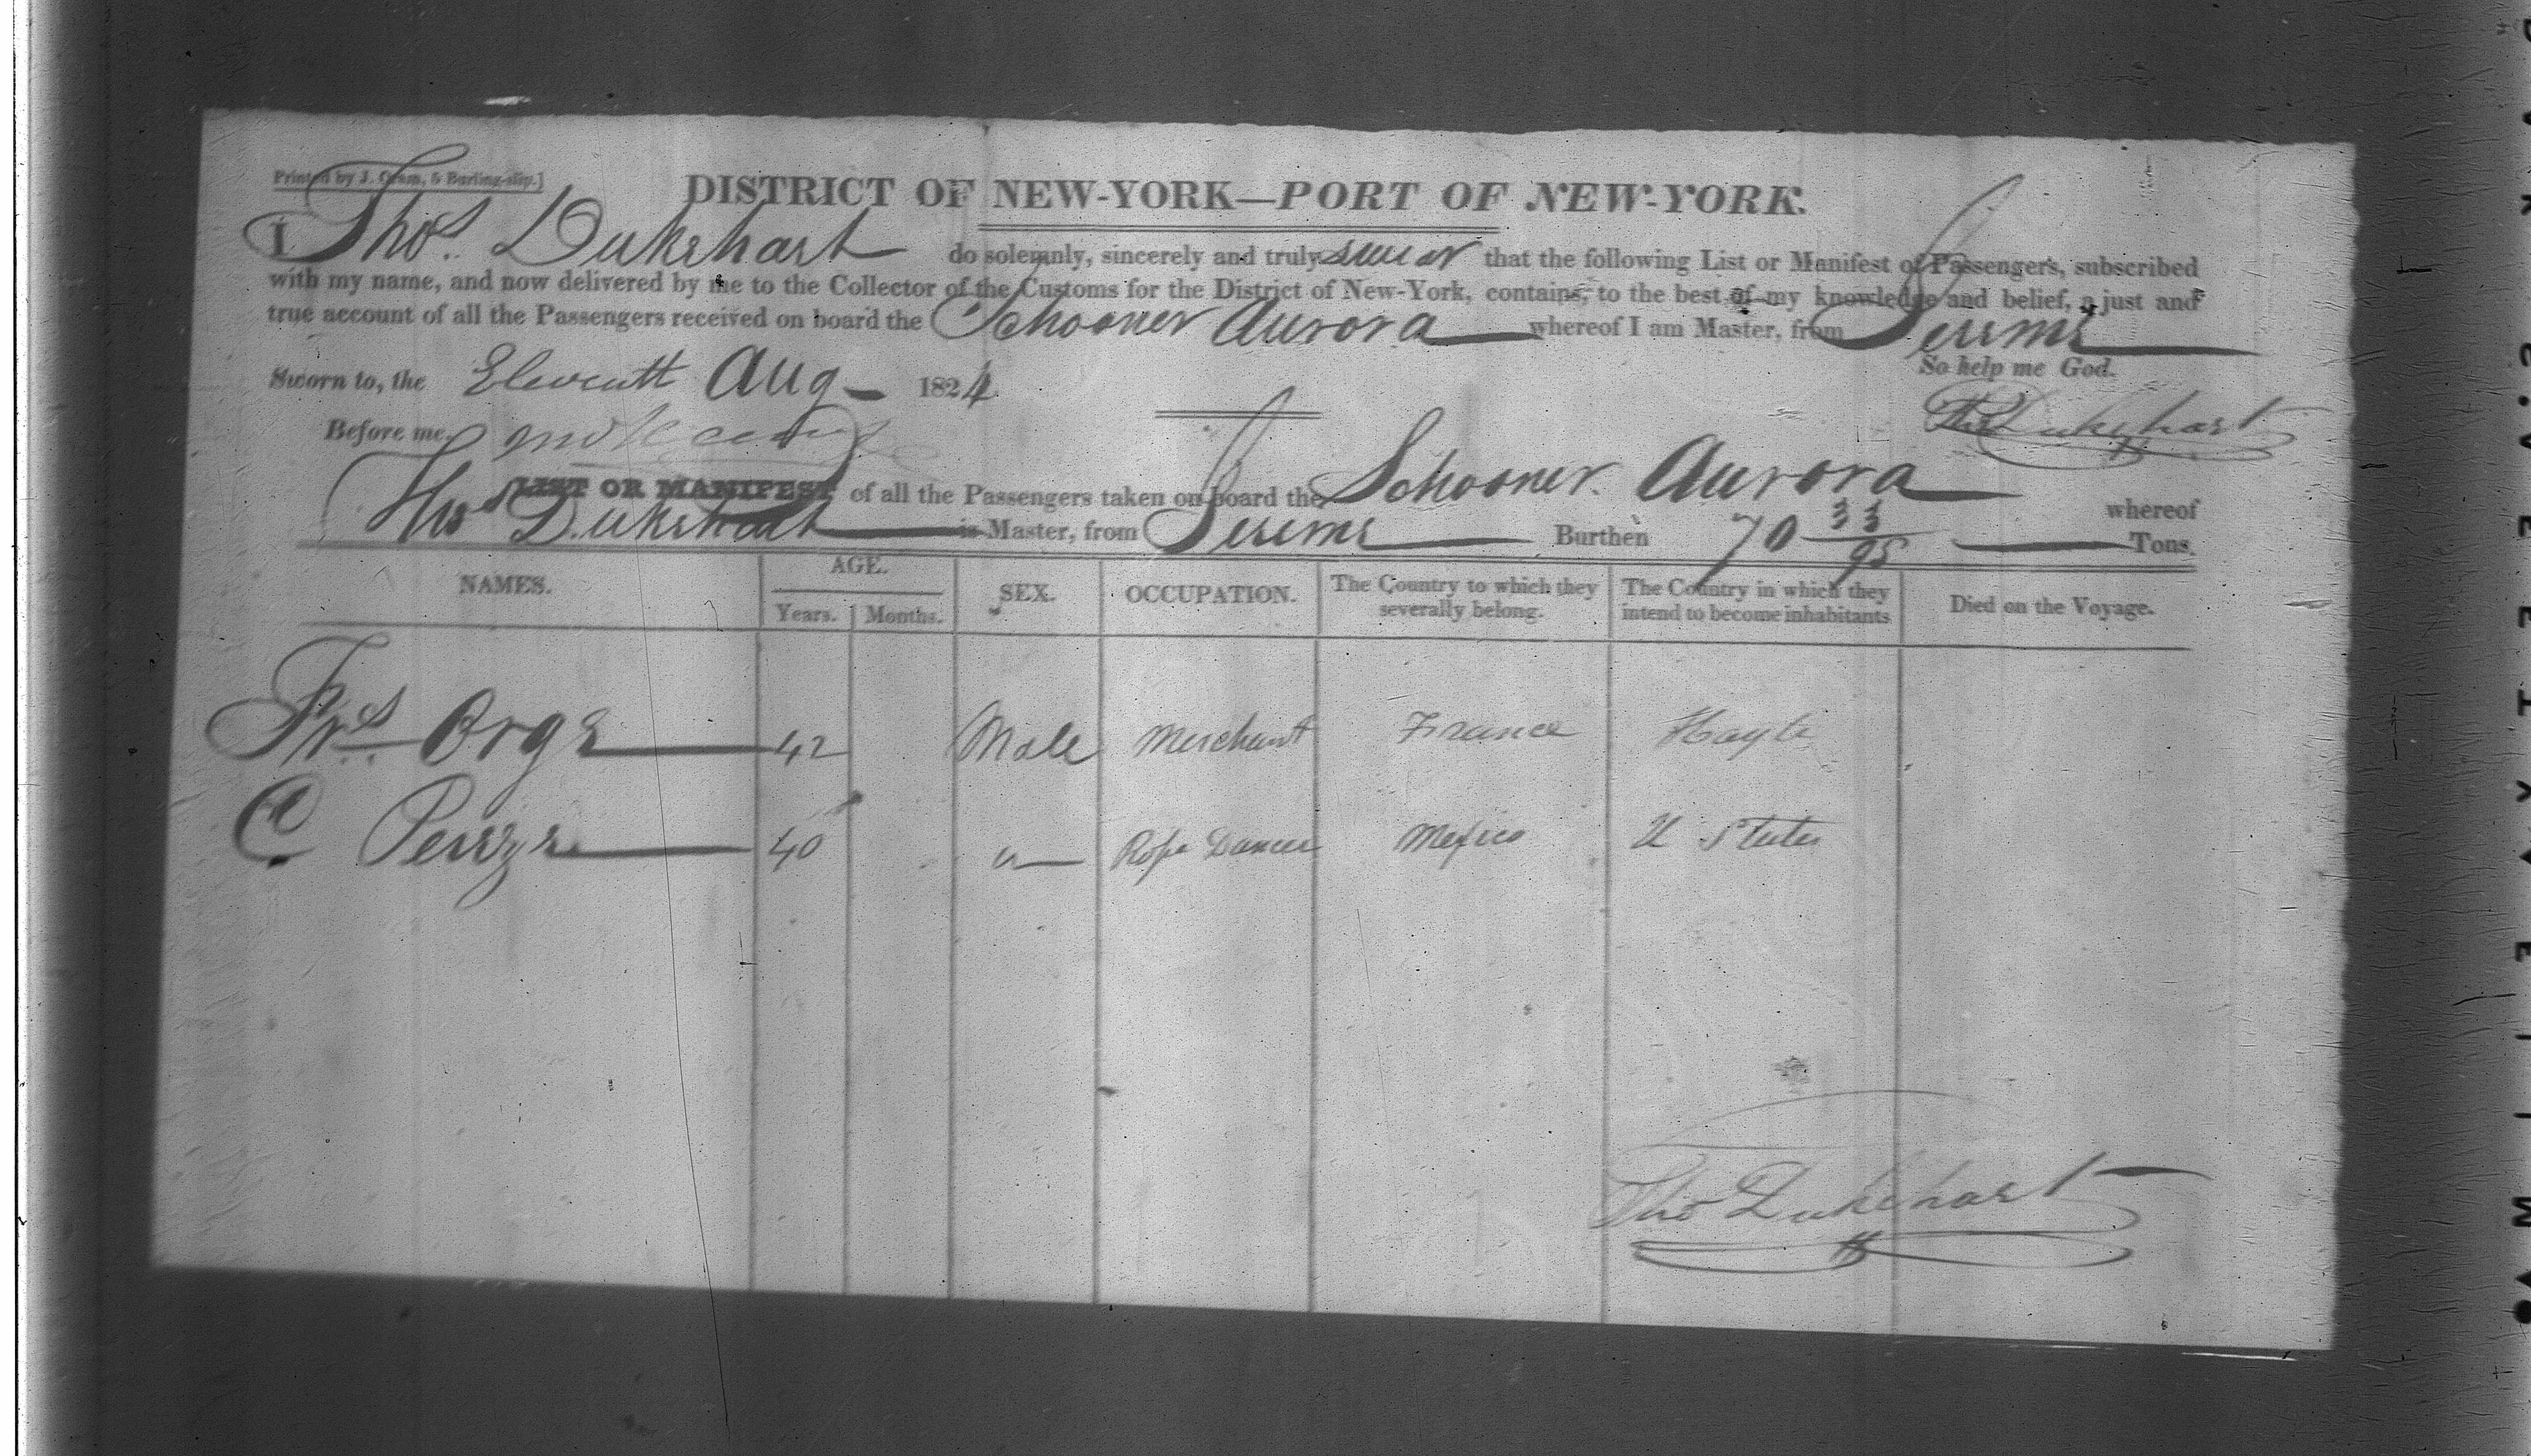 Printed by J. Oram, 5 Burling-slip.]
DISTRICT OF NEW-YORK—PORT OF NEW-YORK.
I Thos. Dukehart do solemnly, sincerely and truly swear that the following List or Manifest of Passengers, subscribed
with my name, and now delivered by me to the Collector of the Customs for the District of New-York, contains, to the best of my knowledge and belief, a just and
true account of all the Passengers received on board the Schooner Aurora whereof I am Master, from Jereme
So help me God.
Sworn to, the Eleventh Aug 1824
Thos Dukehart
Before me,
LIST OR MANIFEST of all the Passengers taken on board the Schooner Aurora whereof
Thos Dukehart is Master, from Jereme Burthen 70 33/95 Tons.
NAMES. AGE. SEX. OCCUPATION. The Country to which they severally belong. The Country in which they intend to become inhabitants Died on the Voyage.
Years. Months.
Frs. Orge 42 Male Merchant France Hayte
C 40 Rope Dancer Mexico U States
Tho Dukehart